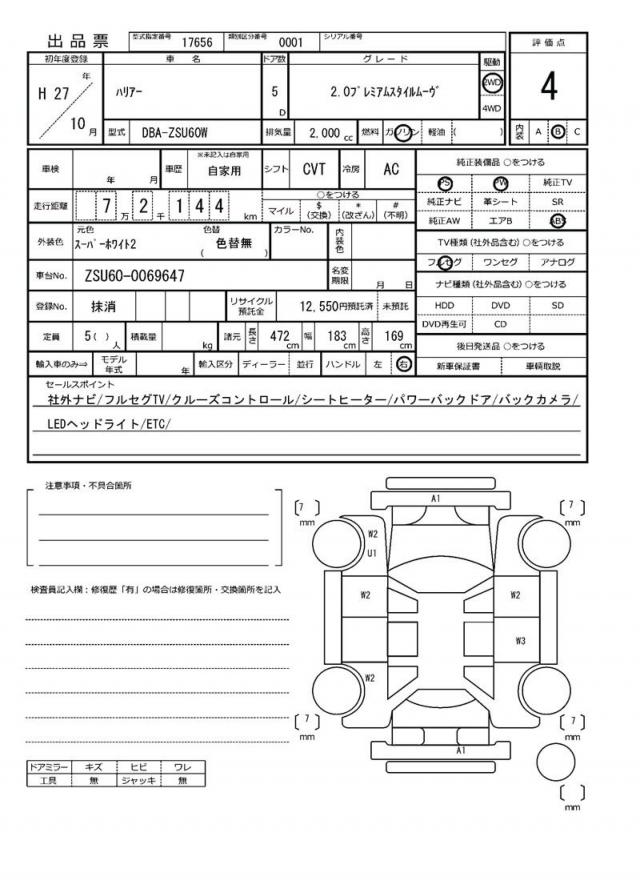 出品票 型式指定番号 17656 類別区分番号 0001 シリアル番号
初年度登録 車名 ドア数 グレード 駆動 評価点
H 27 年 10 月 ﾊﾘｱｰ 5 D 2.0ﾌﾟﾚﾐｱﾑｽﾀｲﾙﾑｰｳﾞ 2WD 4WD 4
型式 DBA-ZSU60W 排気量 2,000 cc 燃料 ガソリン 軽油 ( ) 内装 A B C
車検 年 月 車歴 ※未記入は自家用 自家用 シフト CVT 冷房 AC
純正装備品 ○をつける
PS PW 純正TV
純正ナビ 革シート SR
純正AW エアB ABS
走行距離 7 万 2 千 1 4 4 km
○をつける
マイル $(交換) *(改ざん) #(不明)
TV種類 (社外品含む) ○をつける
フルセグ ワンセグ アナログ
外装色 元色 ｽｰﾊﾟｰﾎﾜｲﾄ2 色替 ( 色替無 ) カラーNo. 内装色
車台No. ZSU60-0069647 名変期限 月 日
ナビ種類 (社外品含む) ○をつける
HDD DVD SD
DVD再生可 CD
登録No. 抹消 リサイクル預託金 12,550円預託済 未預託
定員 5( ) 人 積載量 kg 諸元 長さ 472 cm 幅 183 cm 高さ 169 cm
後日発送品 ○をつける
新車保証書 車輌取説
輸入車のみ⇒ モデル年式 年 輸入区分 ディーラー 並行 ハンドル 左 右
セールスポイント
社外ナビ/フルセグTV/クルーズコントロール/シートヒーター/パワーバックドア/バックカメラ/
LEDヘッドライト/ETC/
注意事項・不具合箇所
検査員記入欄：修復歴「有」の場合は修復箇所・交換箇所を記入
A1
7 mm
7 mm
W2
U1
W2
W2
W3
W2
7 mm
7 mm
A1
mm
ドアミラー キズ ヒビ ワレ
工具 無 ジャッキ 無